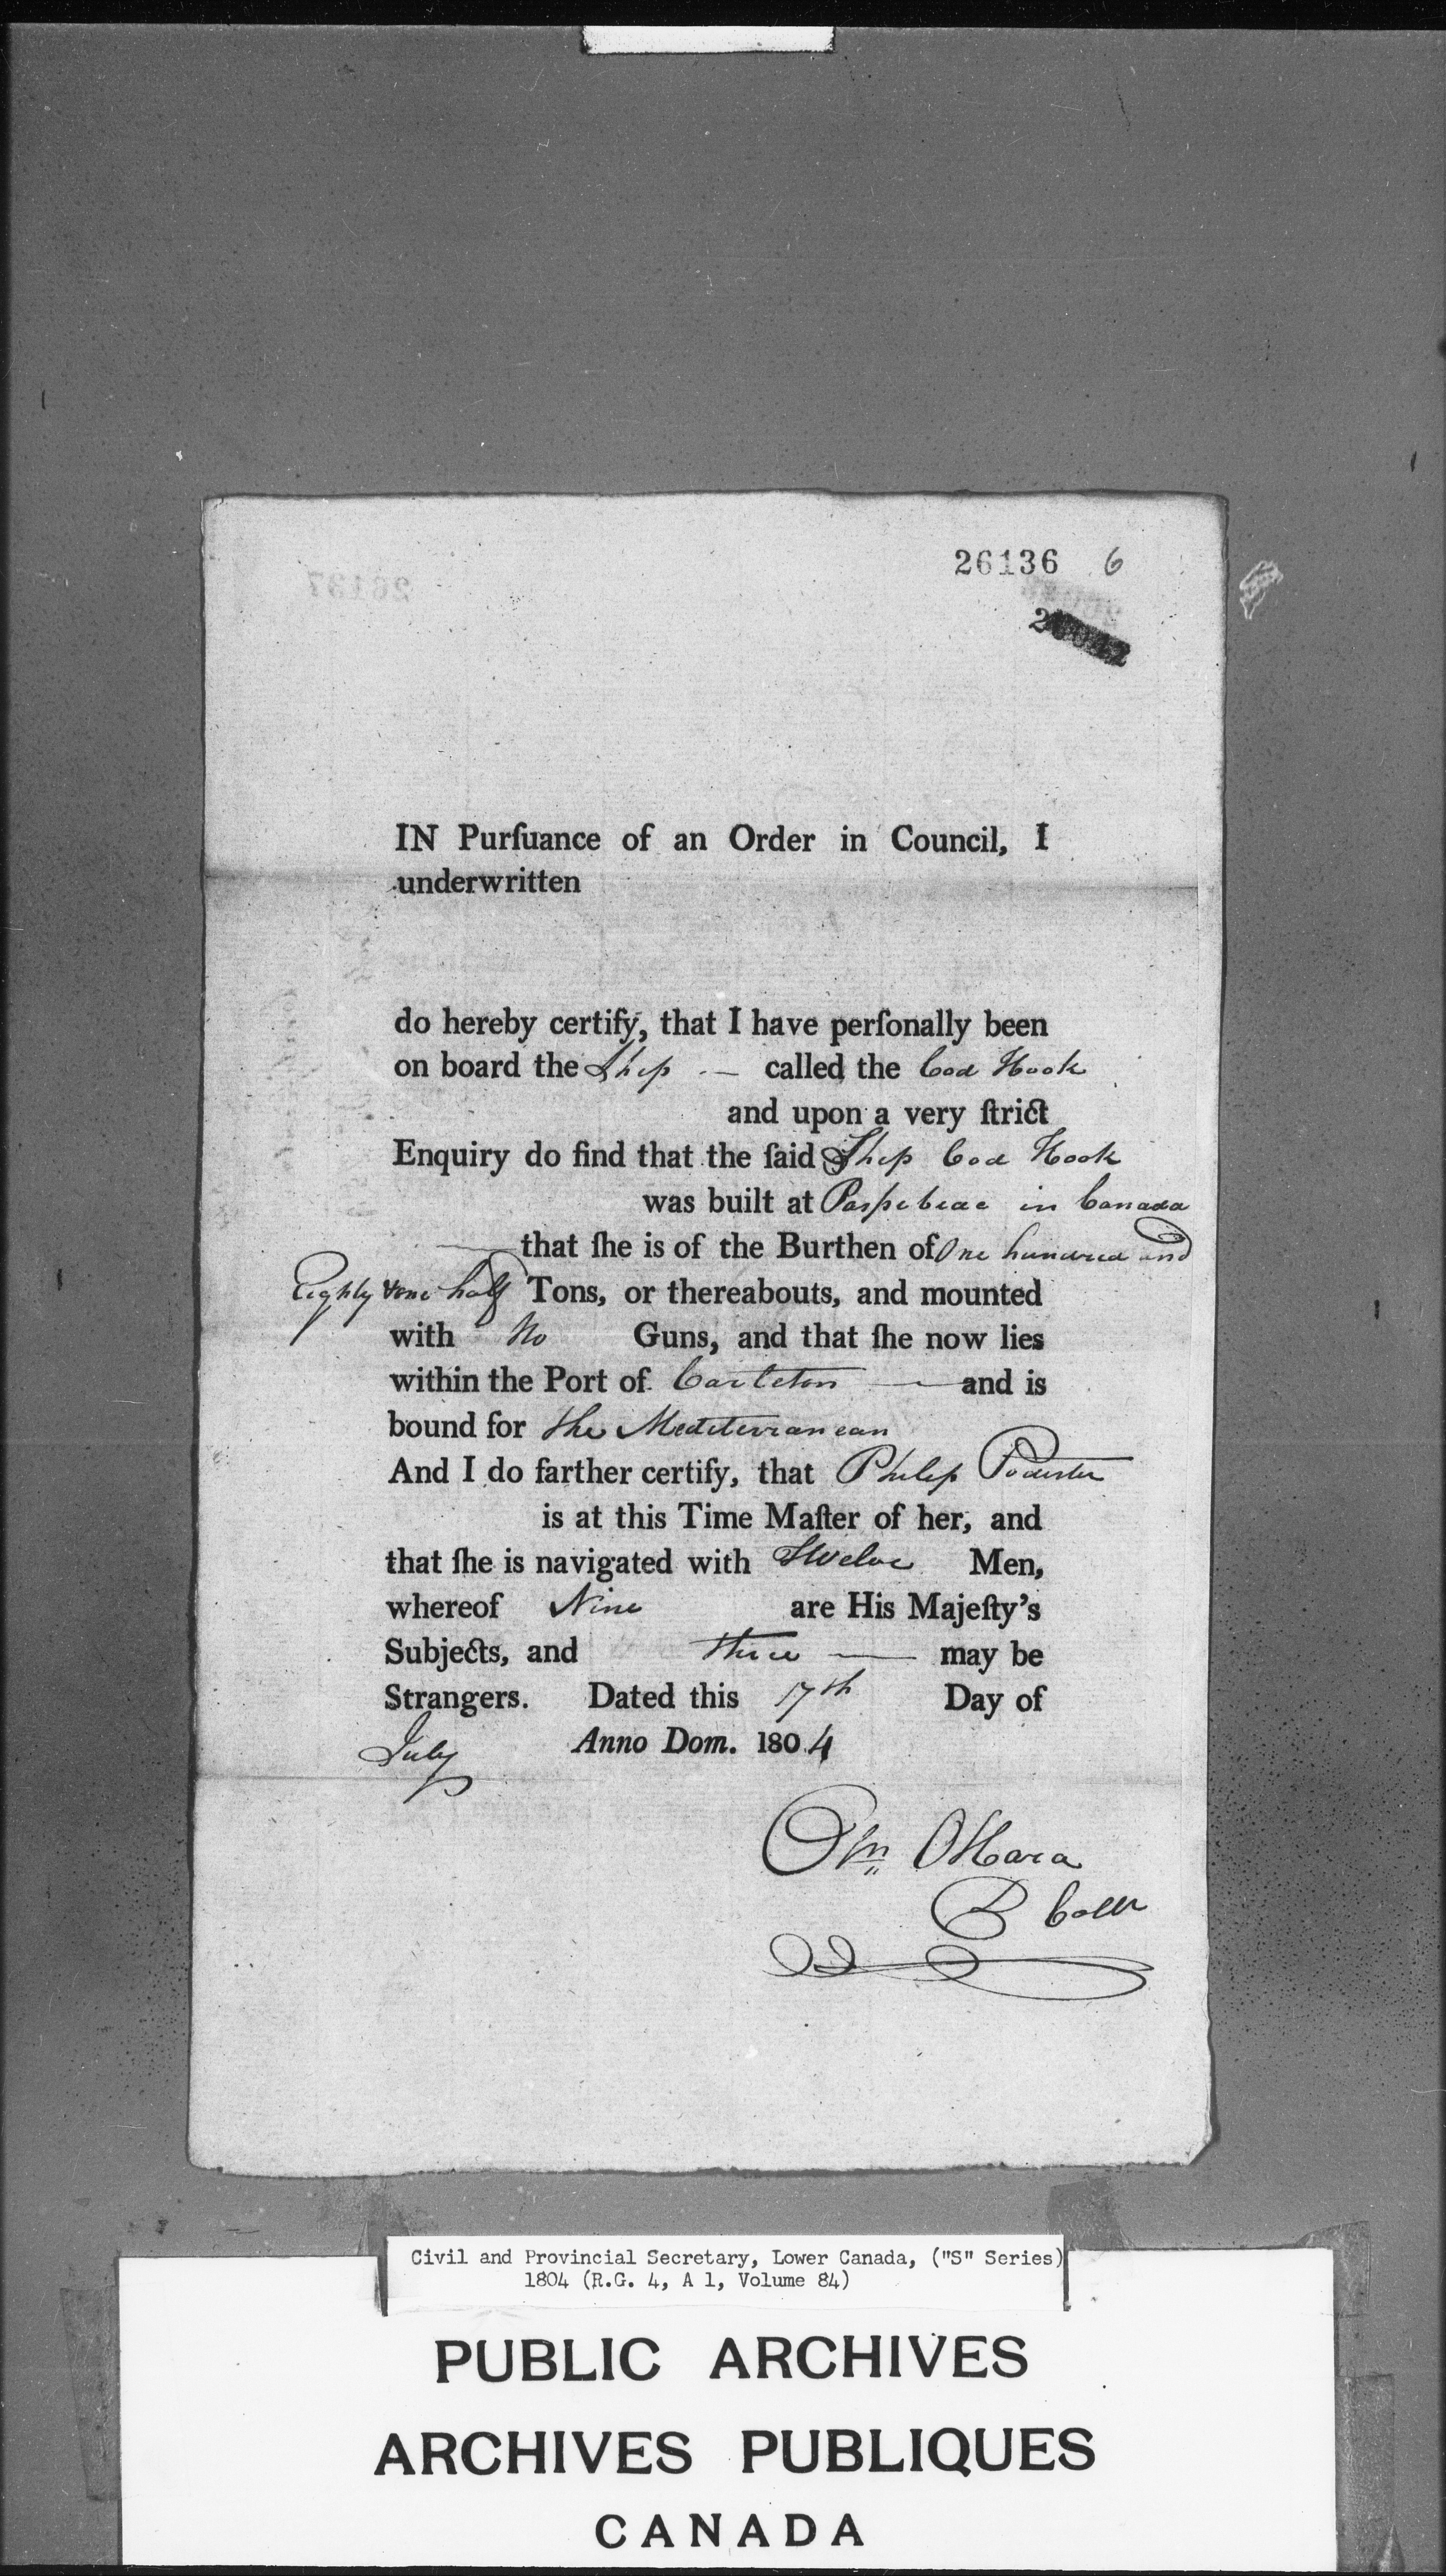 26136 6
IN Purſuance of an Order in Council, I
underwritten
do hereby certify, that I have perſonally been
on board the Ship — called the Cod Hook
and upon a very ſtrict
Enquiry do find that the ſaid Ship Cod Hook
was built at Paspebiac in Canada
— that ſhe is of the Burthen of One hundred and
Eighty & one half Tons, or thereabouts, and mounted
with No Guns, and that ſhe now lies
within the Port of Carleton — and is
bound for the Mediterranean
And I do farther certify, that Philip
is at this Time Maſter of her, and
that ſhe is navigated with Twelve Men,
whereof Nine are His Majeſty's
Subjects, and three — may be
Strangers. Dated this 17th Day of
July Anno Dom. 1804
OHara
Civil and Provincial Secretary, Lower Canada, ("S" Series)
1804 (R.G. 4, A 1, Volume 84)
PUBLIC ARCHIVES
ARCHIVES PUBLIQUES
CANADA